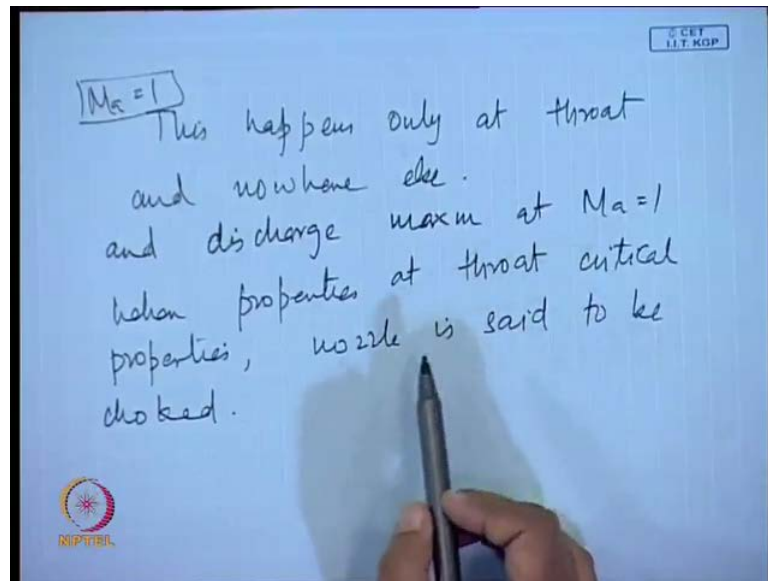 © CET
I.I.T. KGP
Ma = 1
This happens only at throat
and nowhere else.
and discharge maxm at Ma = 1
when properties at throat critical
properties, nozzle is said to be
choked.
NPTEL